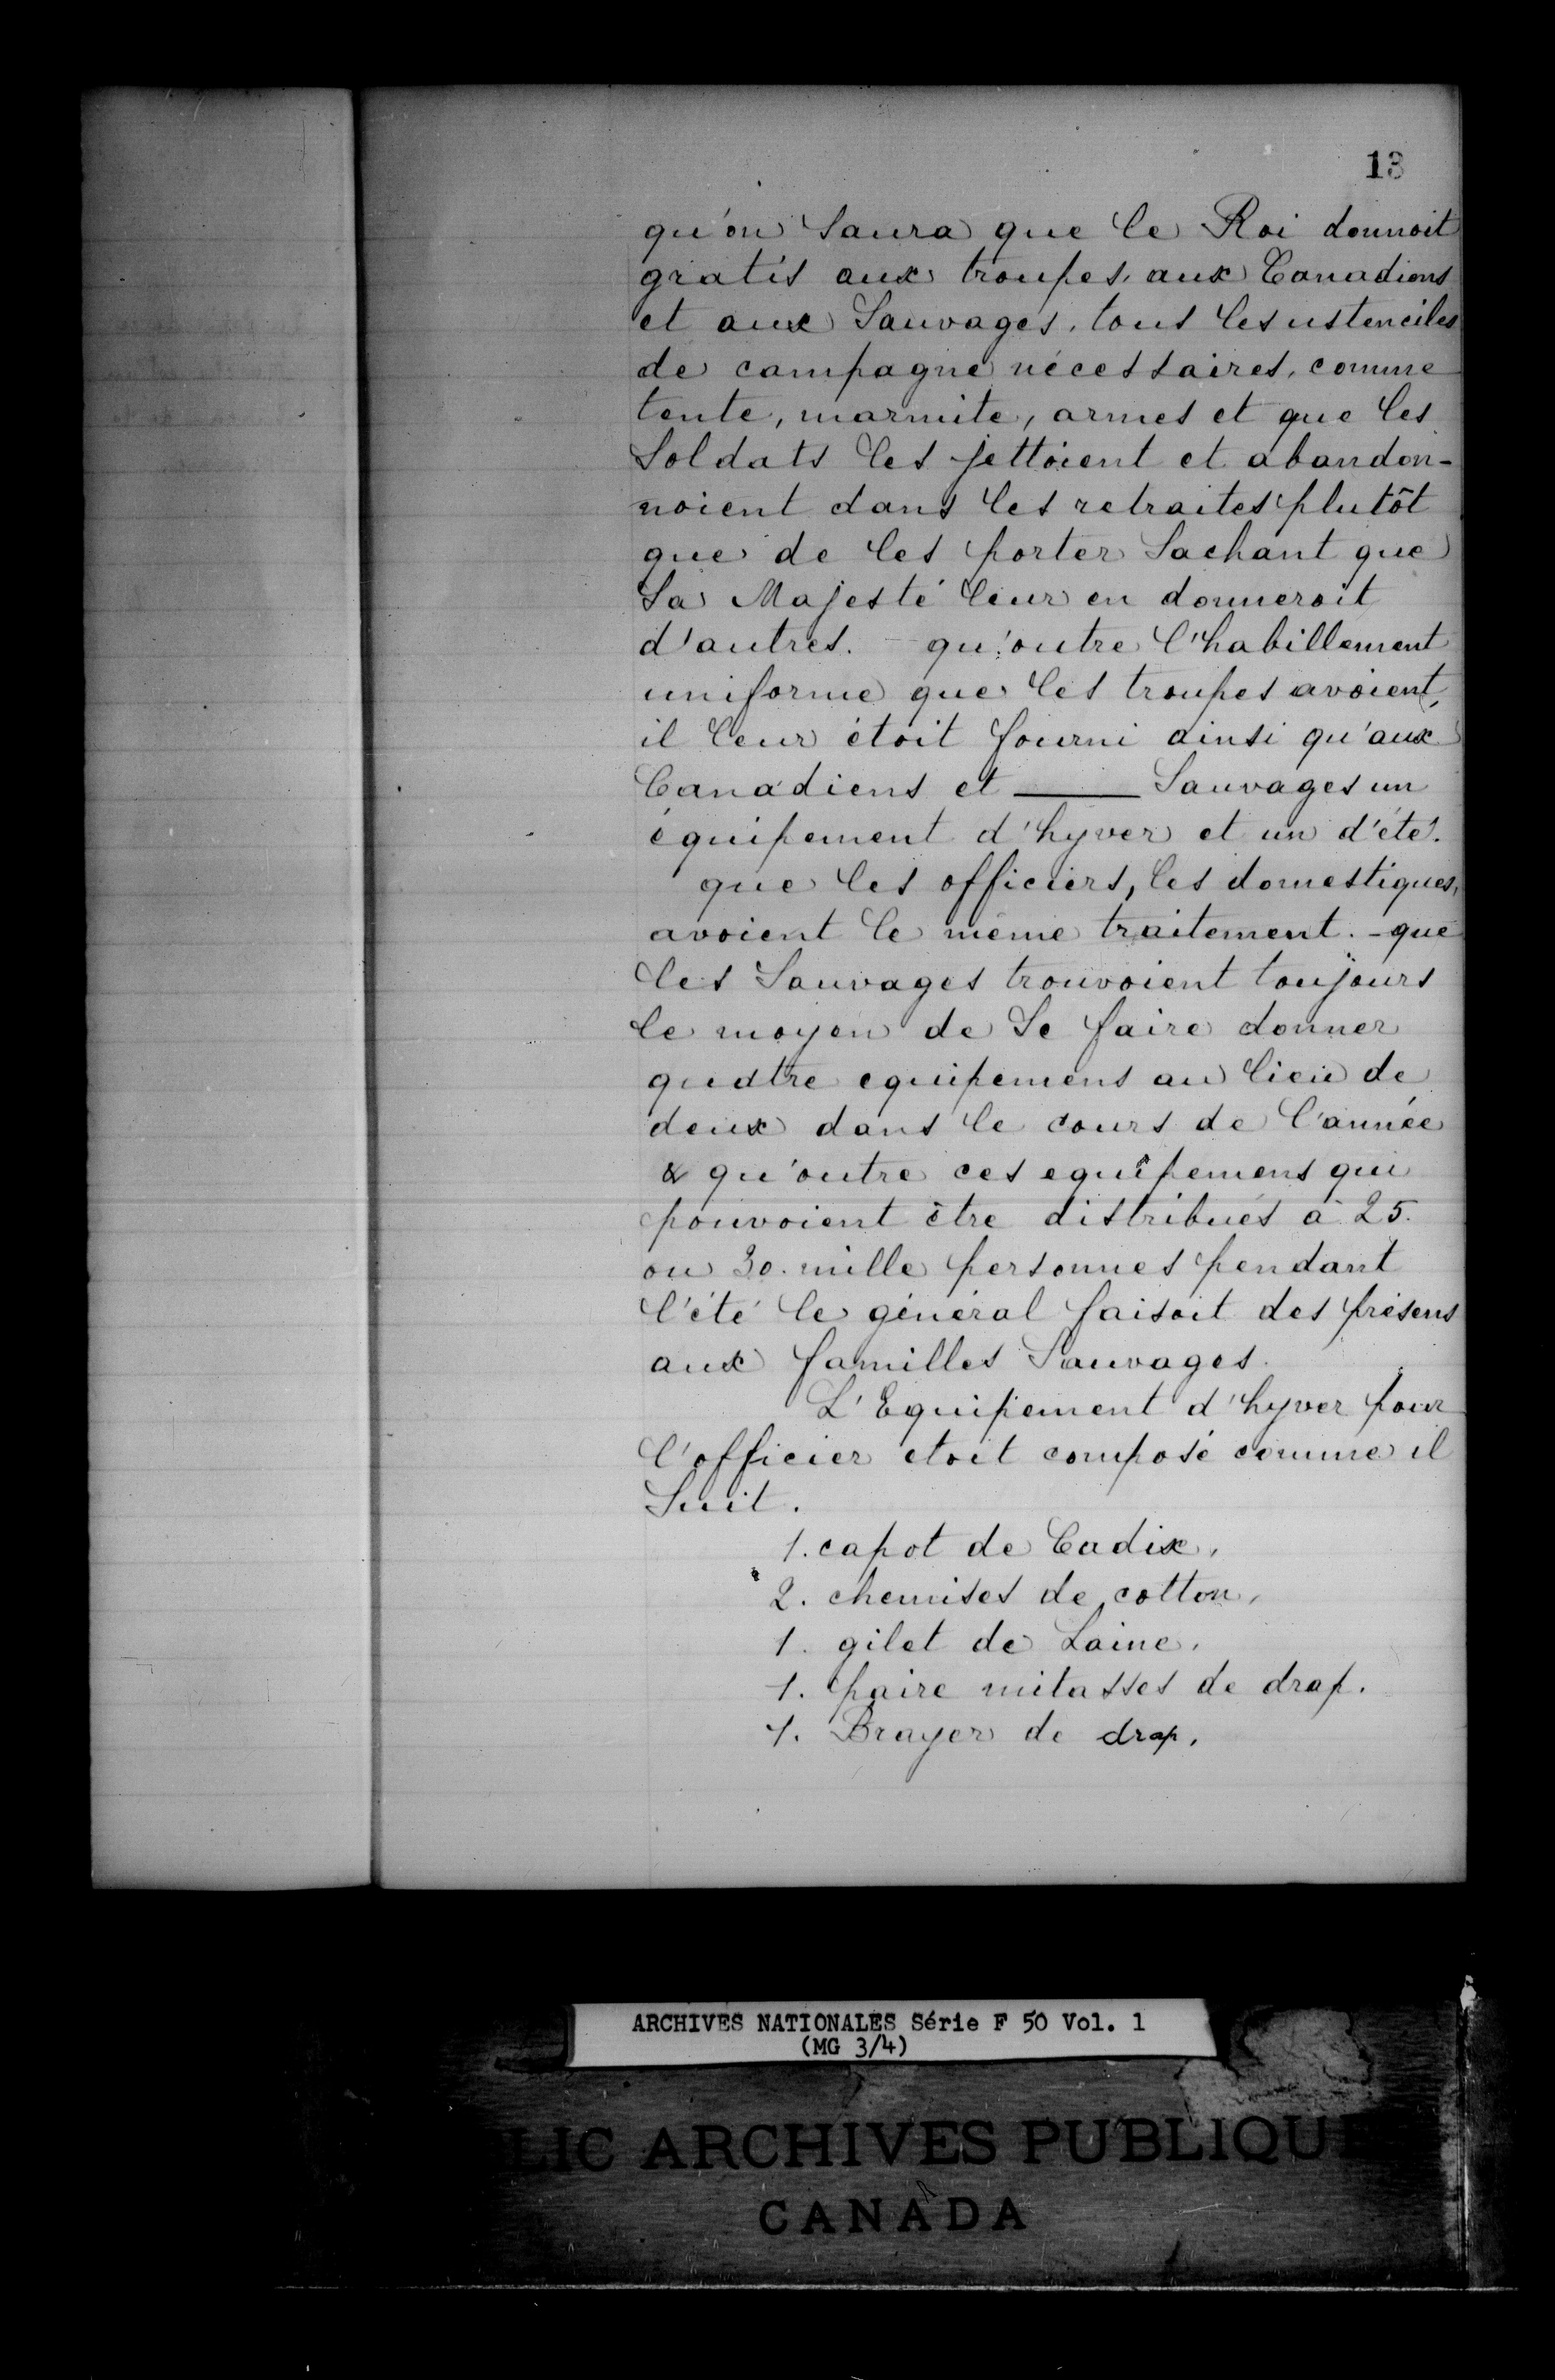 13
qu'on Saura que le Roi donnoit
gratis aux troupes, aux Canadiens
et aux Sauvages, tous les ustenciles
de campagne nécessaires, comme
tente, marmite, armes et que les
Soldats les jettoient et abandon-
noient dans les retraites plutôt
que de les porter Sachant que
Sa Majesté leur en donneroit
d'autres. - qu'outre l'habillement
uniforme que les troupes avoient,
il leur étoit fourni ainsi qu'aux
Canadiens et ____ Sauvages un
équipement d'hyver et un d'été.
que les officiers, les domestiques,
avoient le même traitement. - que
les Sauvages trouvoient toujours
le moyen de Se faire donner
quatre equipemens au lieu de
deux dans le cours de l'année
& qu'outre ces equipemens qui
pouvoient être distribués à 25.
ou 30. mille personnes pendant
l'été le général faisoit des présens
aux familles Sauvages.
L'Equipement d'hyver pour
l'officier etoit composé comme il
Suit.
1. capot de Cadix,
2. chemises de cotton,
1. gilet de Laine,
1. paire mitasses de drap.
1. Brayer de drap,
ARCHIVES NATIONALES Série F 50 Vol. 1
(MG 3/4)
LIC ARCHIVES PUBLIQU
CANADA